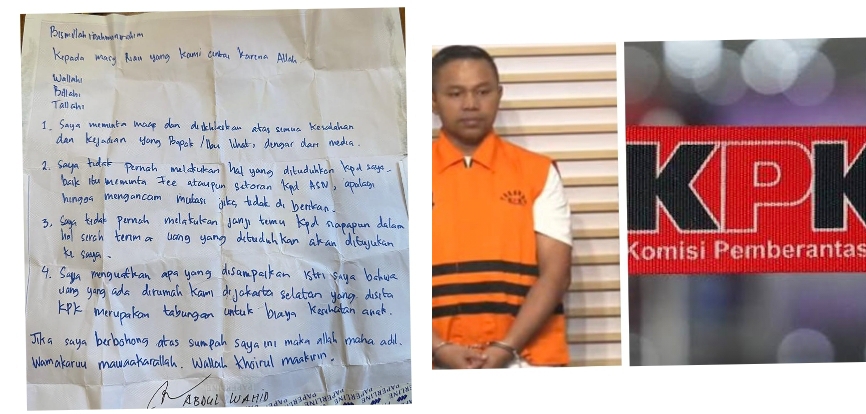 Bismillahirahmanirahim
Kepada masy Riau yang kami cintai karena Allah
Wallahi
Billahi
Tallahi
1. Saya meminta maaf dan diikhlaskan atas semua kesalahan
dan kejadian yang Bapak/Ibu lihat, dengar dari media.
2. Saya tidak pernah melakukan hal yang dituduhkan kpd saya.
baik itu meminta Fee ataupun setoran kpd ASN, apalagi
hingga mengancam mutasi jika tidak di berikan.
3. Saya tidak pernah melakukan janji temu kpd siapapun dalam
hal serah terima uang yang dituduhkan akan ditujukan
ke saya.
4. Saya menguatkan apa yang disampaikan istri saya bahwa
uang yang ada dirumah kami di jakarta selatan yang disita
KPK merupakan tabungan untuk biaya kesehatan anak.
Jika saya berbohong atas sumpah saya ini maka allah maha adil.
Wamakaruu mawaakarallah. Wallah khoirul maakirin.
ABDUL WAHID
PAPERLINE
KPK
Komisi Pemberantas